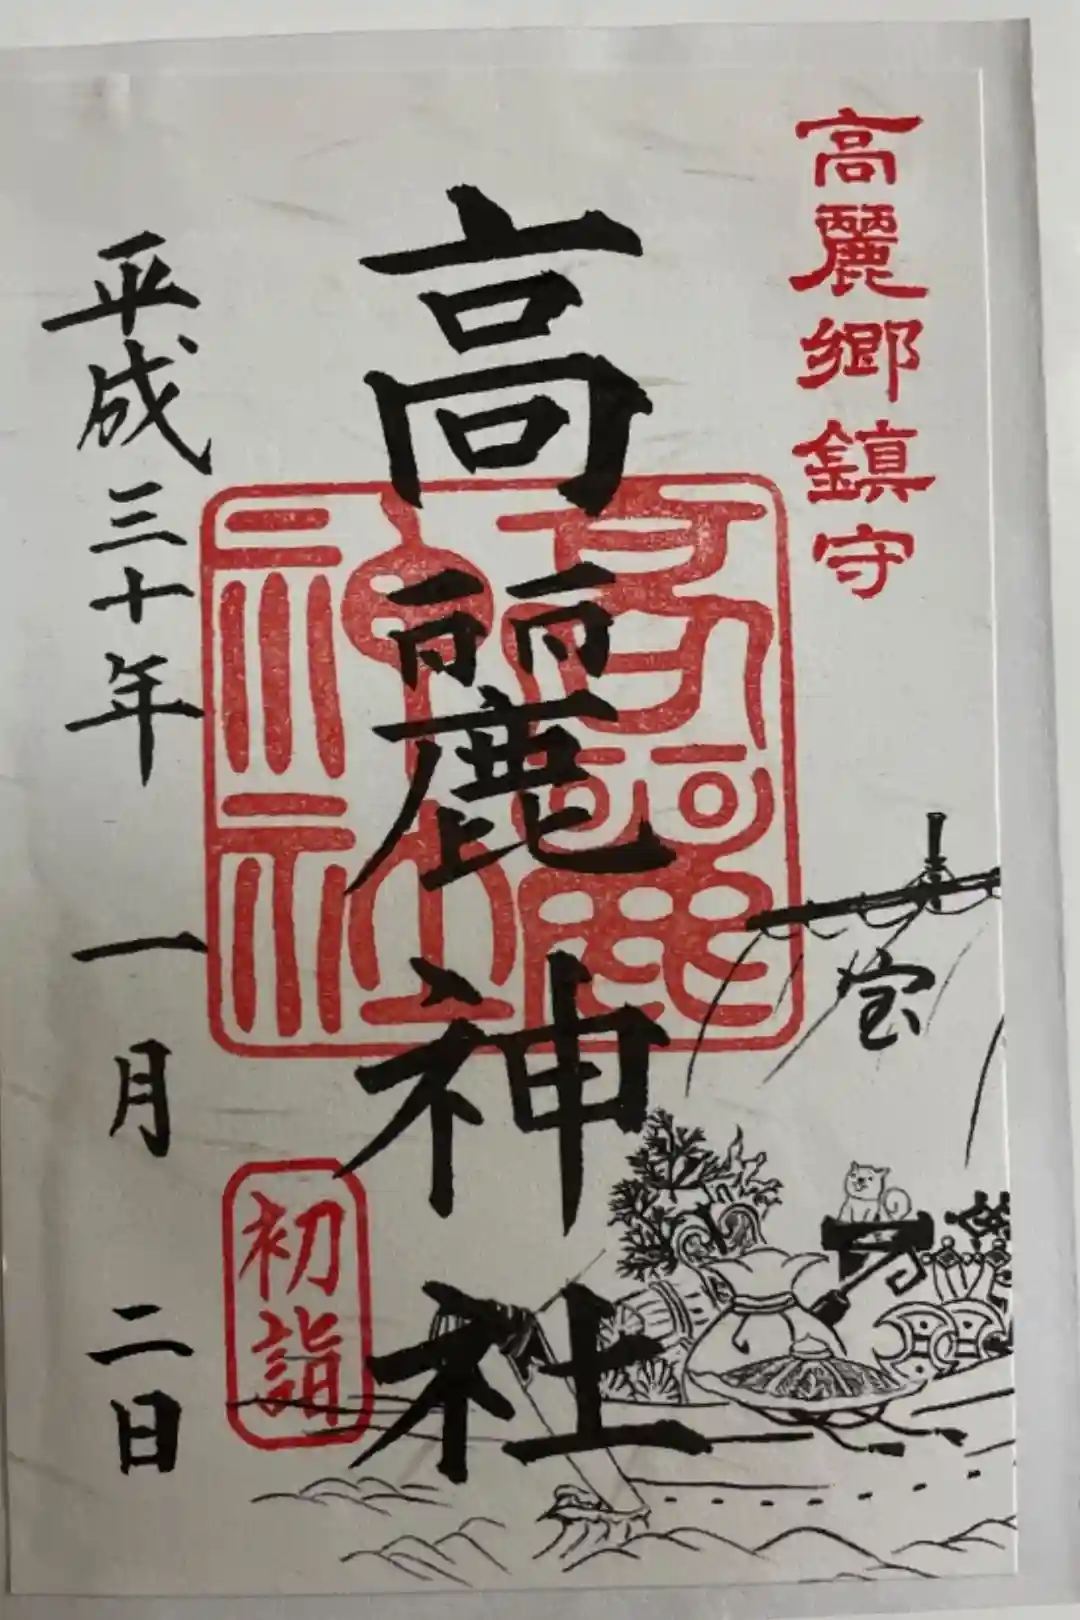 高麗郷鎮守
高麗神社
平成三十年一月二日
高麗神社
初詣
宝